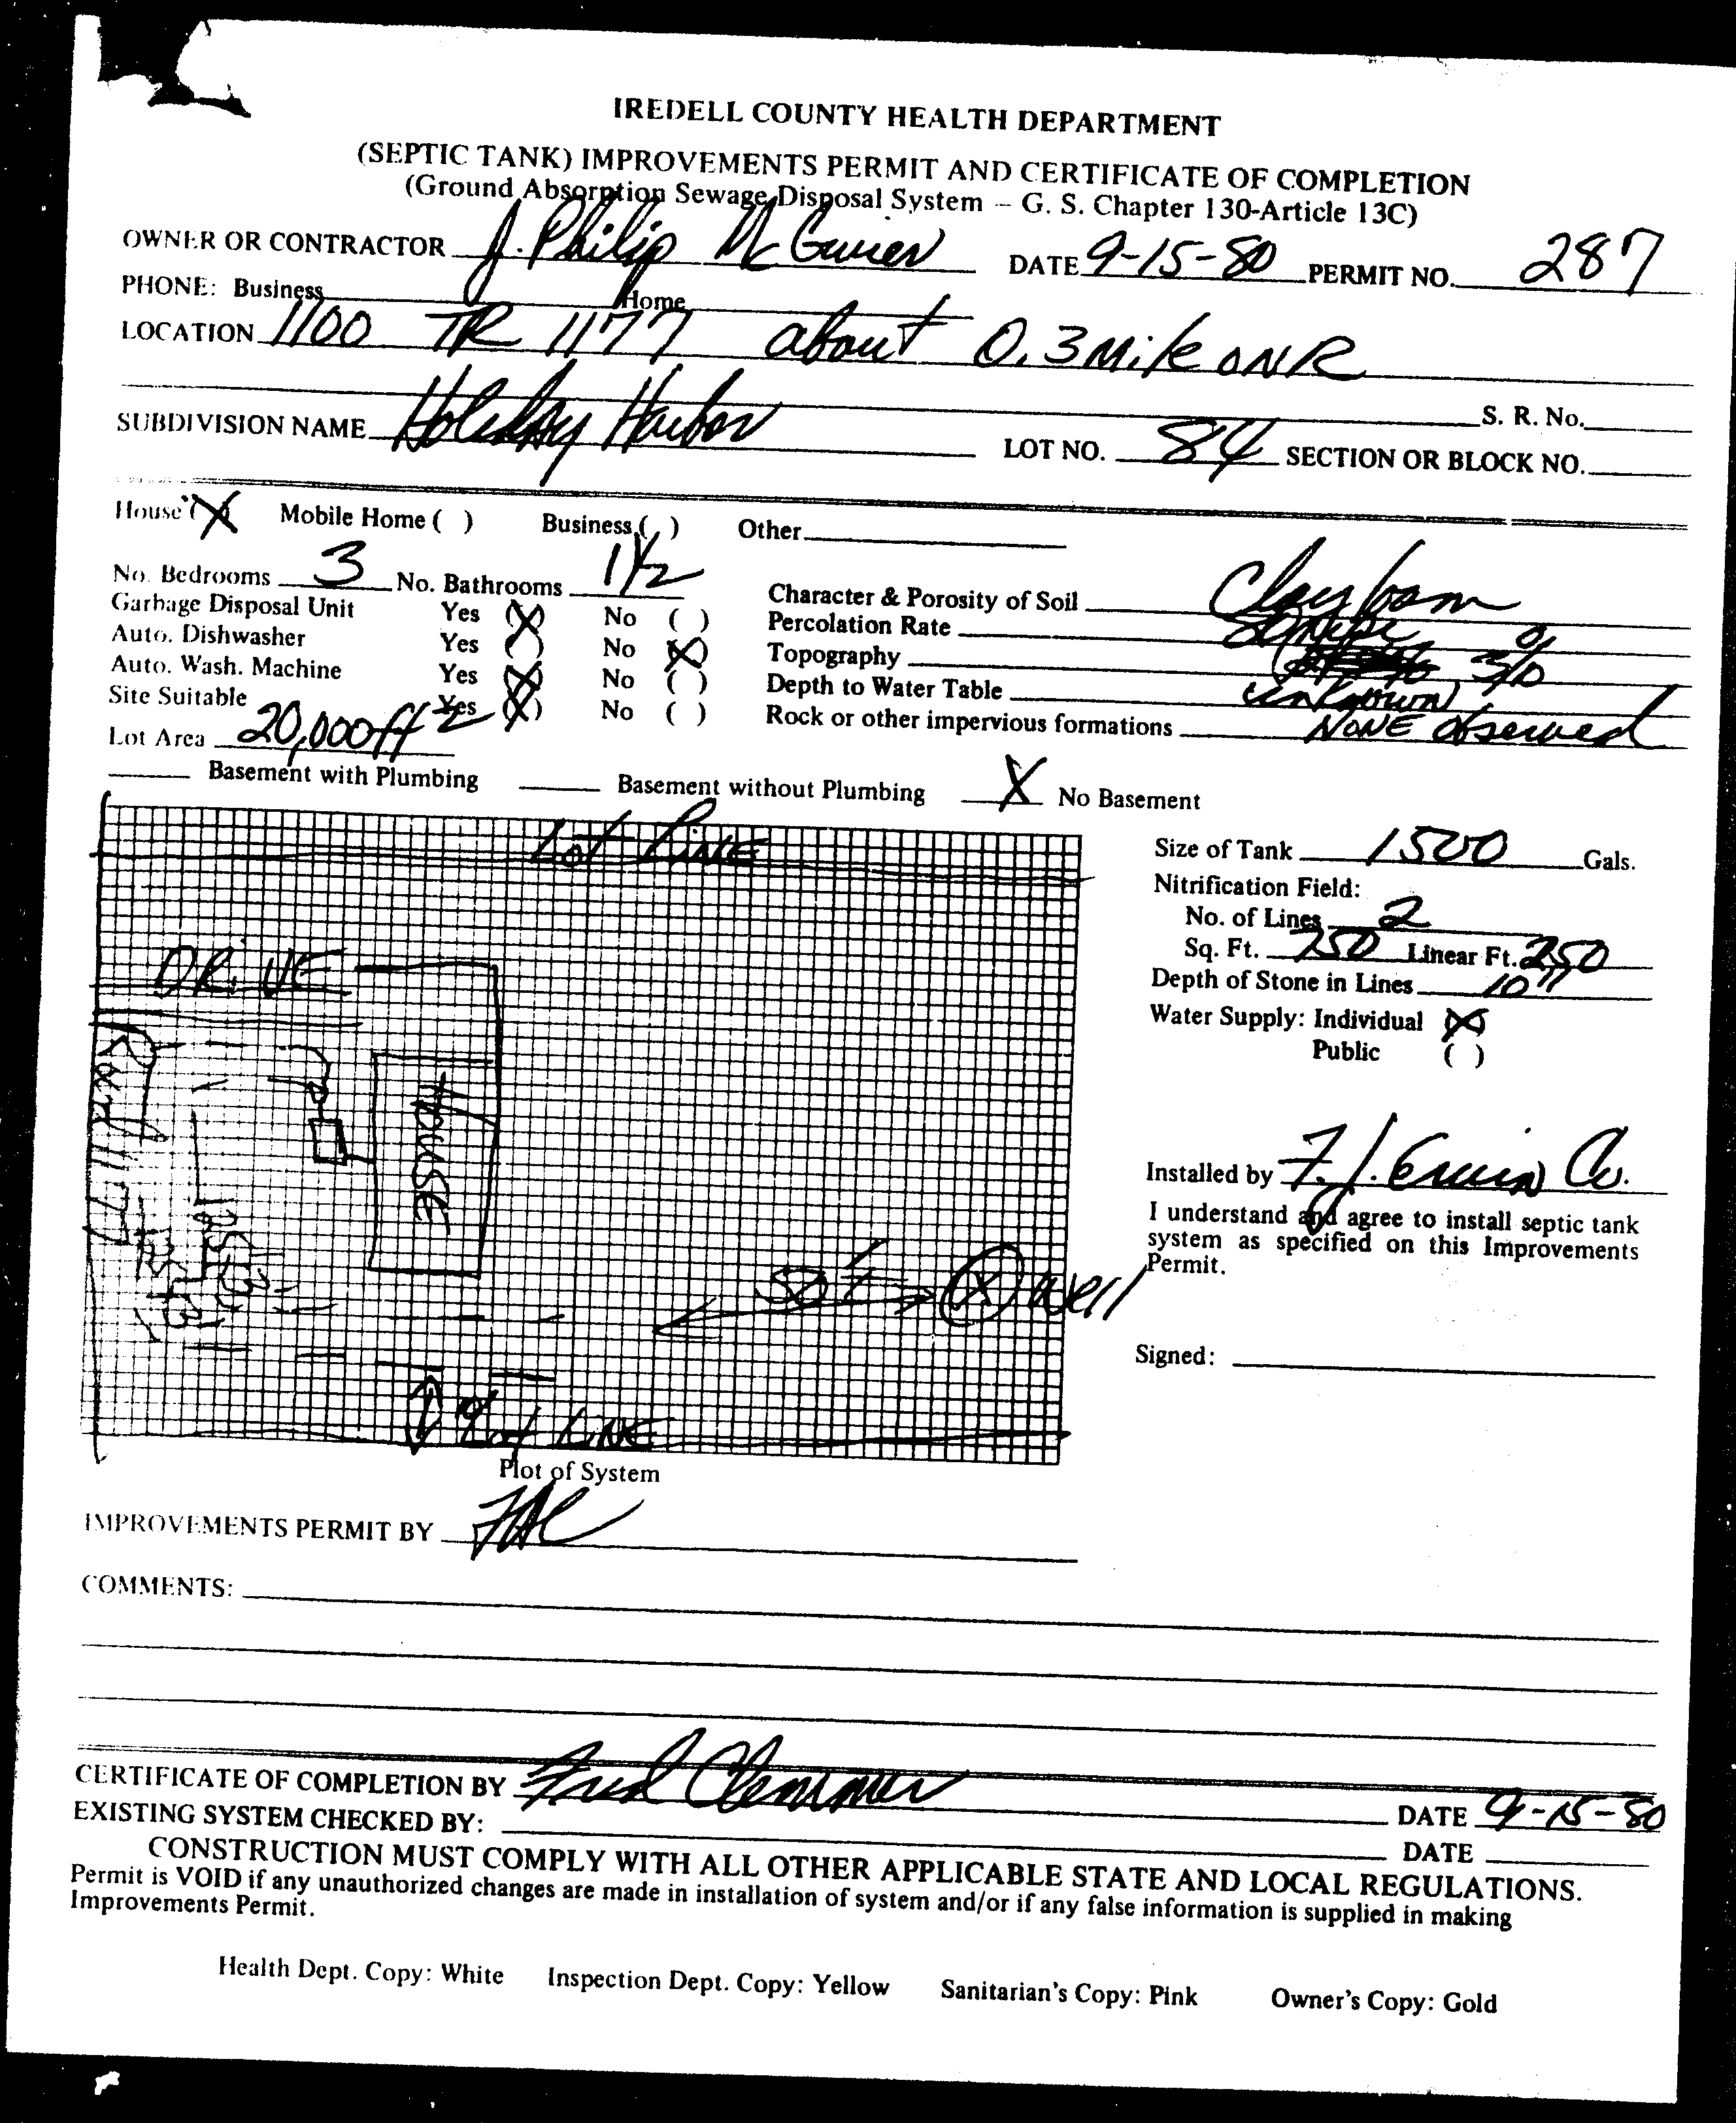 IREDELL COUNTY HEALTH DEPARTMENT
(SEPTIC TANK) IMPROVEMENTS PERMIT AND CERTIFICATE OF COMPLETION
(Ground Absorption Sewage Disposal System – G. S. Chapter 130-Article 13C)
OWNER OR CONTRACTOR J. Philip DATE 9-15-80 PERMIT NO. 287
PHONE: Business Home
LOCATION 1100 TR 1177 about 0.3 Mile ON R
S. R. No.
SUBDIVISION NAME Holiday Harbor LOT NO. 84 SECTION OR BLOCK NO.
House (X) Mobile Home ( ) Business ( ) Other
No. Bedrooms 3 No. Bathrooms 1 1/2
Garbage Disposal Unit Yes (X) No ( )
Auto. Dishwasher Yes ( ) No (X)
Auto. Wash. Machine Yes (X) No ( )
Site Suitable Yes (X) No ( )
Lot Area 20,000 ft 2
Character & Porosity of Soil Clay loam
Percolation Rate
Topography
Depth to Water Table unknown
Rock or other impervious formations NONE observed
Basement with Plumbing Basement without Plumbing X No Basement
Lot LINE
DRIVE
Road 1177
HOUSE
50 ft
X well
Lot LINE
Plot of System
Size of Tank 1500 Gals.
Nitrification Field:
No. of Lines 2
Sq. Ft. 750 Linear Ft. 250
Depth of Stone in Lines 10"
Water Supply: Individual (X)
Public ( )
Installed by F. J. Ervin Co.
I understand and agree to install septic tank
system as specified on this Improvements
Permit.
Signed:
IMPROVEMENTS PERMIT BY
COMMENTS:
CERTIFICATE OF COMPLETION BY Fred Clemmer DATE 9-15-80
EXISTING SYSTEM CHECKED BY: DATE
CONSTRUCTION MUST COMPLY WITH ALL OTHER APPLICABLE STATE AND LOCAL REGULATIONS.
Permit is VOID if any unauthorized changes are made in installation of system and/or if any false information is supplied in making
Improvements Permit.
Health Dept. Copy: White Inspection Dept. Copy: Yellow Sanitarian's Copy: Pink Owner's Copy: Gold